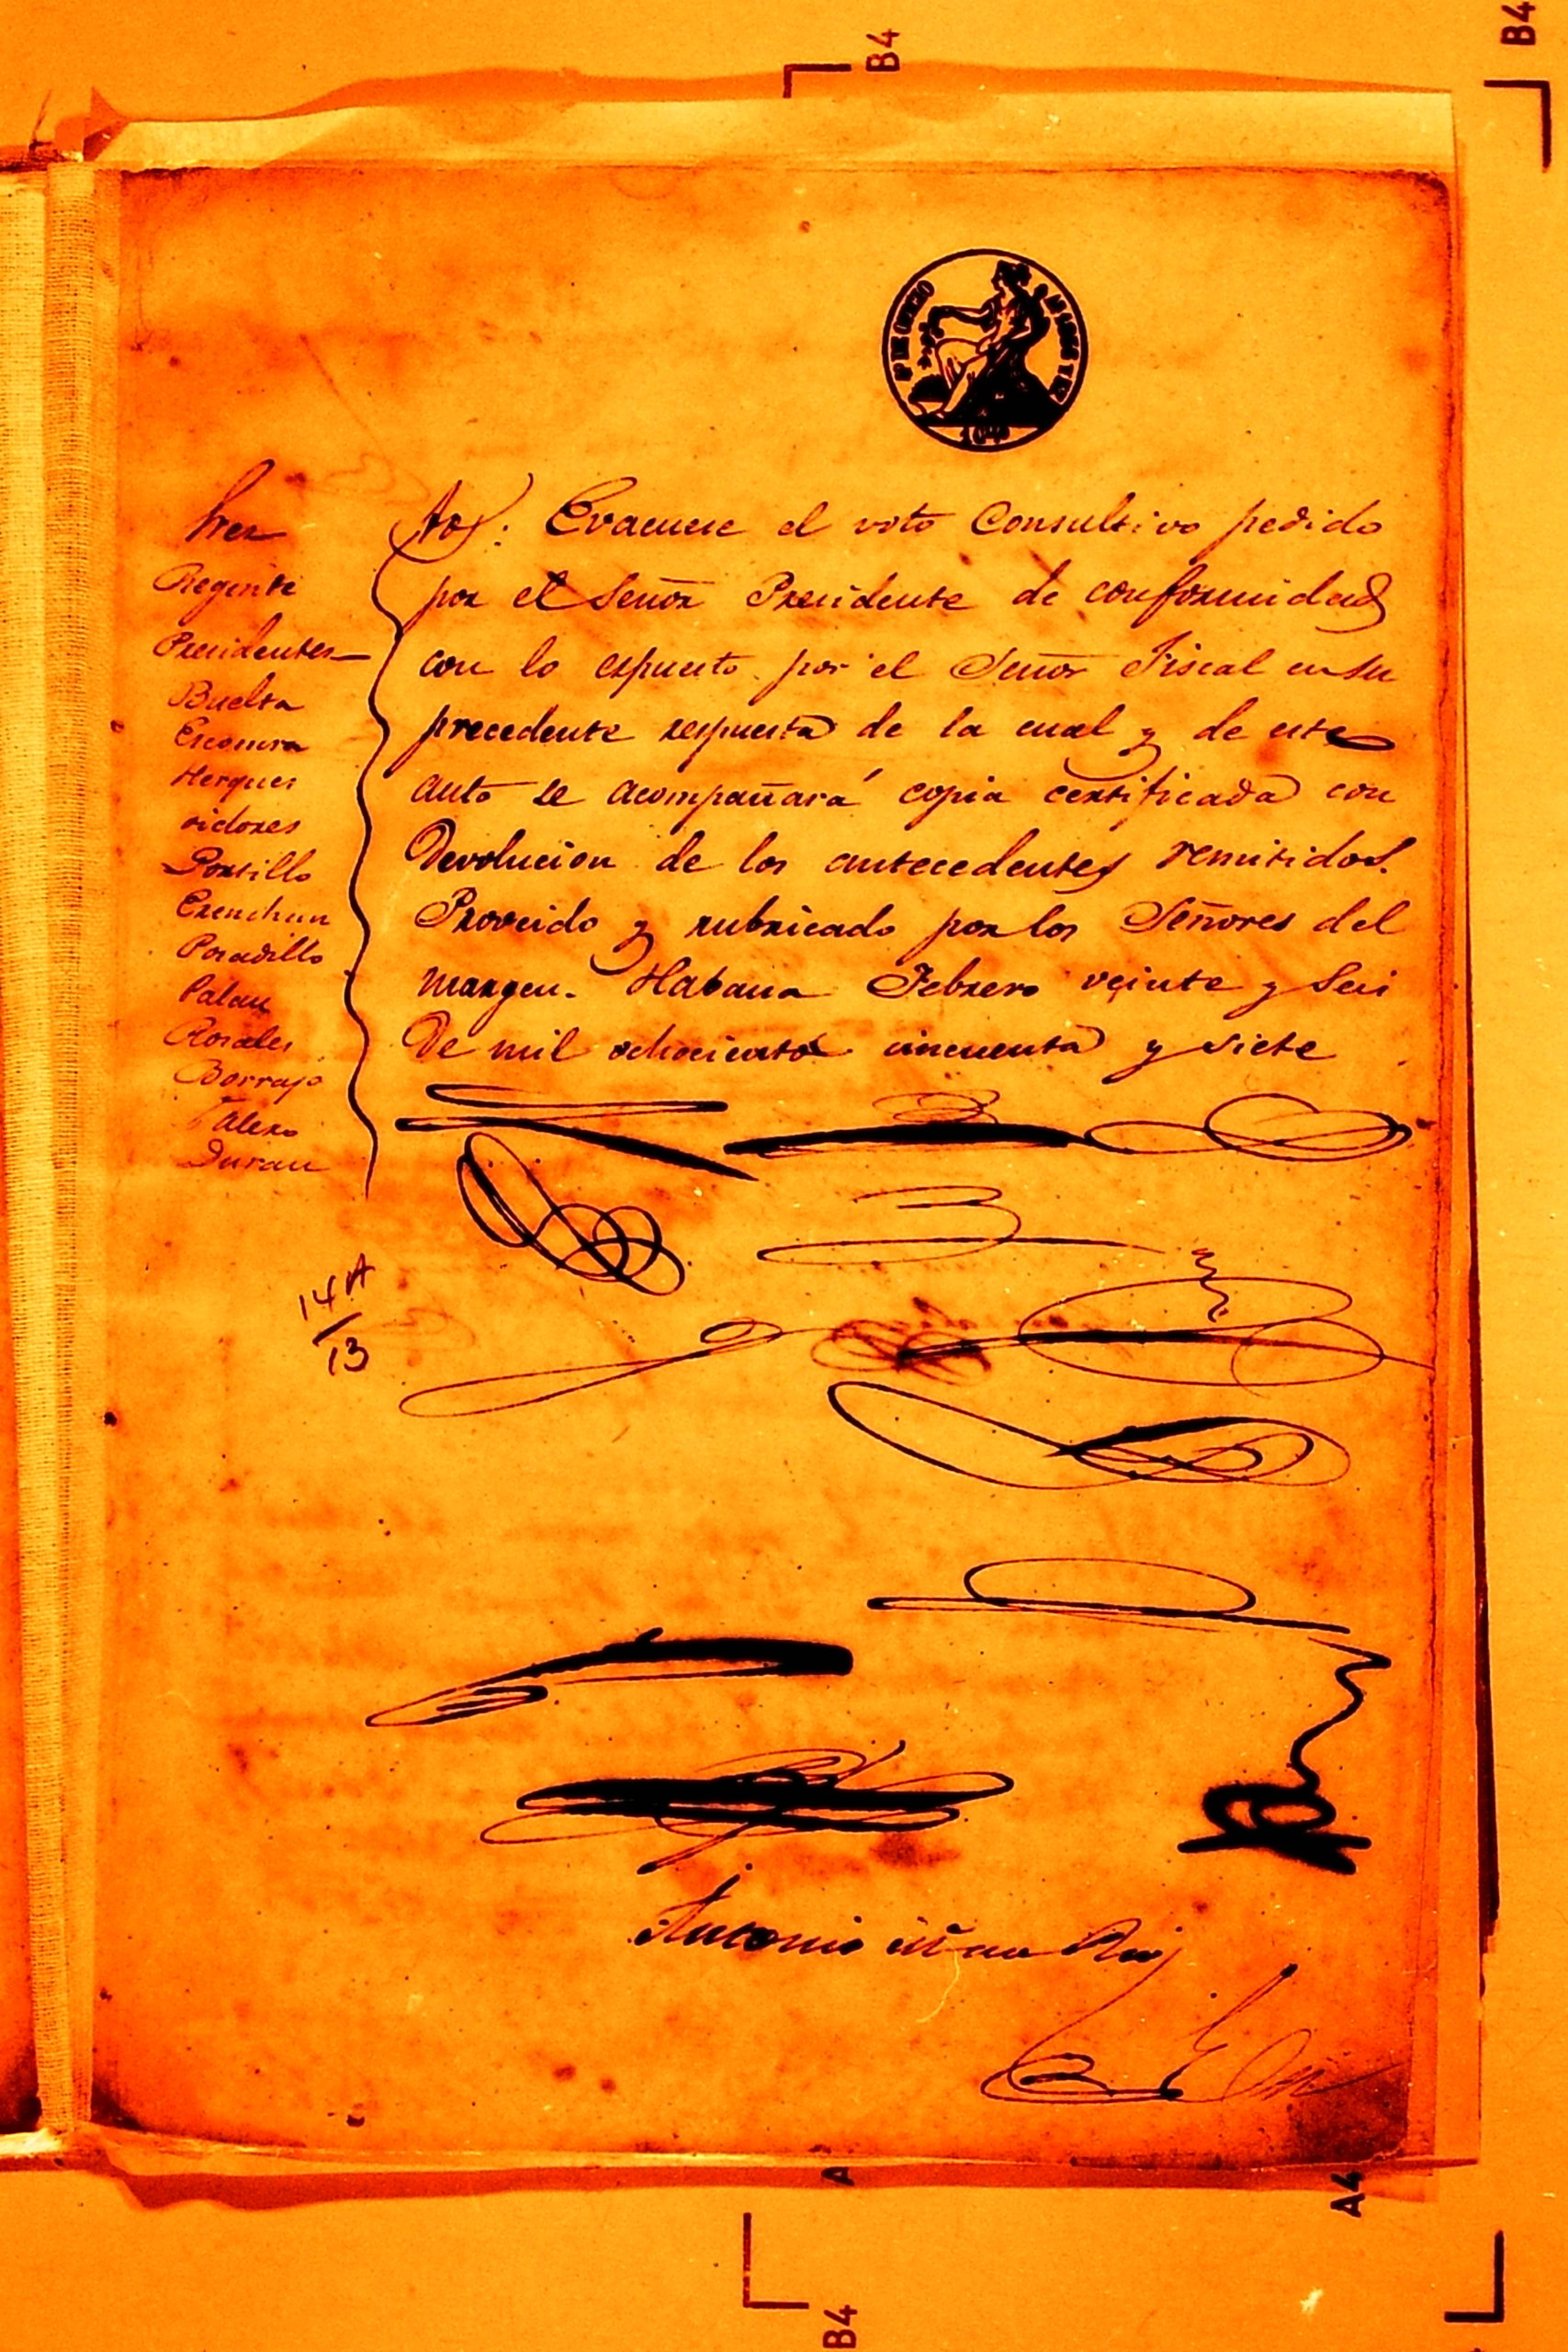 B4
B4
Sres
Regente
Presidentes
Buelta
Escosura
Herques
oidores
Portillo
Posadillo
Palau
Rosales
Borrajo
Valero
Duran
14 A
13
Evacuese el voto Consultivo pedido
por el Señor Presidente de conformidad
con lo espuesto por el Señor Fiscal en su
precedente respuesta de la cual y de este
auto se acompañará copia certificada con
Devolucion de los antecedentes remitidos.
Proveido y rubricado por los Señores del
margen. Habana Febrero veinte y Seis
De mil ochocientos cincuenta y siete
Antonio
A
A4
B4